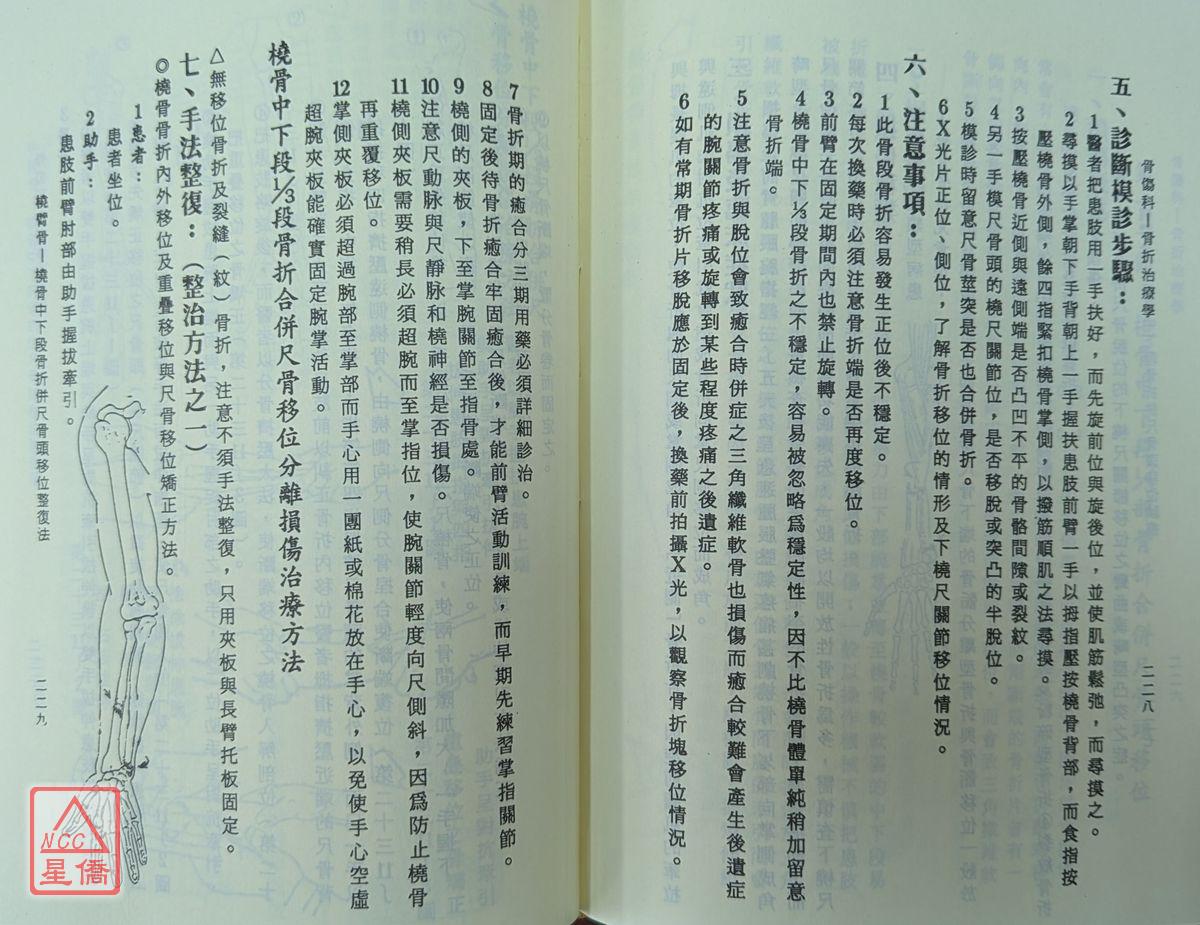 骨傷科—骨折治療學
二二八
五、診斷模診步驟：
1醫者把患肢用一手扶好，而先旋前位與旋後位，並使肌筋鬆弛，而尋摸之。
2尋摸以手掌朝下手背朝上一手握扶患肢前臂一手以拇指壓按橈骨背部，而食指按
壓橈骨外側，餘四指緊扣橈骨掌側，以撥筋順肌之法尋摸。
3按壓橈骨近側與遠側端是否凸凹不平的骨骼間隙或裂紋。
4另一手模尺骨頭的橈尺關節位，是否移脫或突凸的半脫位。
5模診時留意尺骨莖突是否也合併骨折。
6X光片正位、側位，了解骨折移位的情形及下橈尺關節移位情況。
六、注意事項：
1此骨段骨折容易發生正位後不穩定。
2每次換藥時必須注意骨折端是否再度移位。
3前臂在固定期間內也禁止旋轉。
4橈骨中下⅓段骨折之不穩定，容易被忽略爲穩定性，因不比橈骨體單純稍加留意
骨折端。
5注意骨折與脫位會致癒合時併症之三角纖維軟骨也損傷而癒合較難會產生後遺症
的腕關節疼痛或旋轉到某些程度疼痛之後遺症。
6如有常期骨折片移脫應於固定後，換藥前拍攝X光，以觀察骨折塊移位情況。
7骨折期的癒合分三期用藥必須詳細診治。
8固定後待骨折癒合牢固癒合後，才能前臂活動訓練，而早期先練習掌指關節。
9橈側的夾板，下至掌腕關節至指骨處。
10注意尺動脉與尺靜脉和橈神經是否損傷。
11橈側夾板需要稍長必須超腕而至掌指位，使腕關節輕度向尺側斜，因爲防止橈骨
再重覆移位。
12掌側夾板必須超過腕部至掌部而手心用一團紙或棉花放在手心，以免使手心空虛
超腕夾板能確實固定腕掌活動。
橈骨中下段⅓段骨折合併尺骨移位分離損傷治療方法
△無移位骨折及裂縫（紋）骨折，注意不須手法整復，只用夾板與長臂托板固定。
七、手法整復：（整治方法之一）
◎橈骨骨折內外移位及重疊移位與尺骨移位矯正方法。
1患者：
患者坐位。
2助手：
患肢前臂肘部由助手握拔牽引。
橈臂骨—橈骨中下段骨折併尺骨頭移位整復法
二二九
NCC
星僑